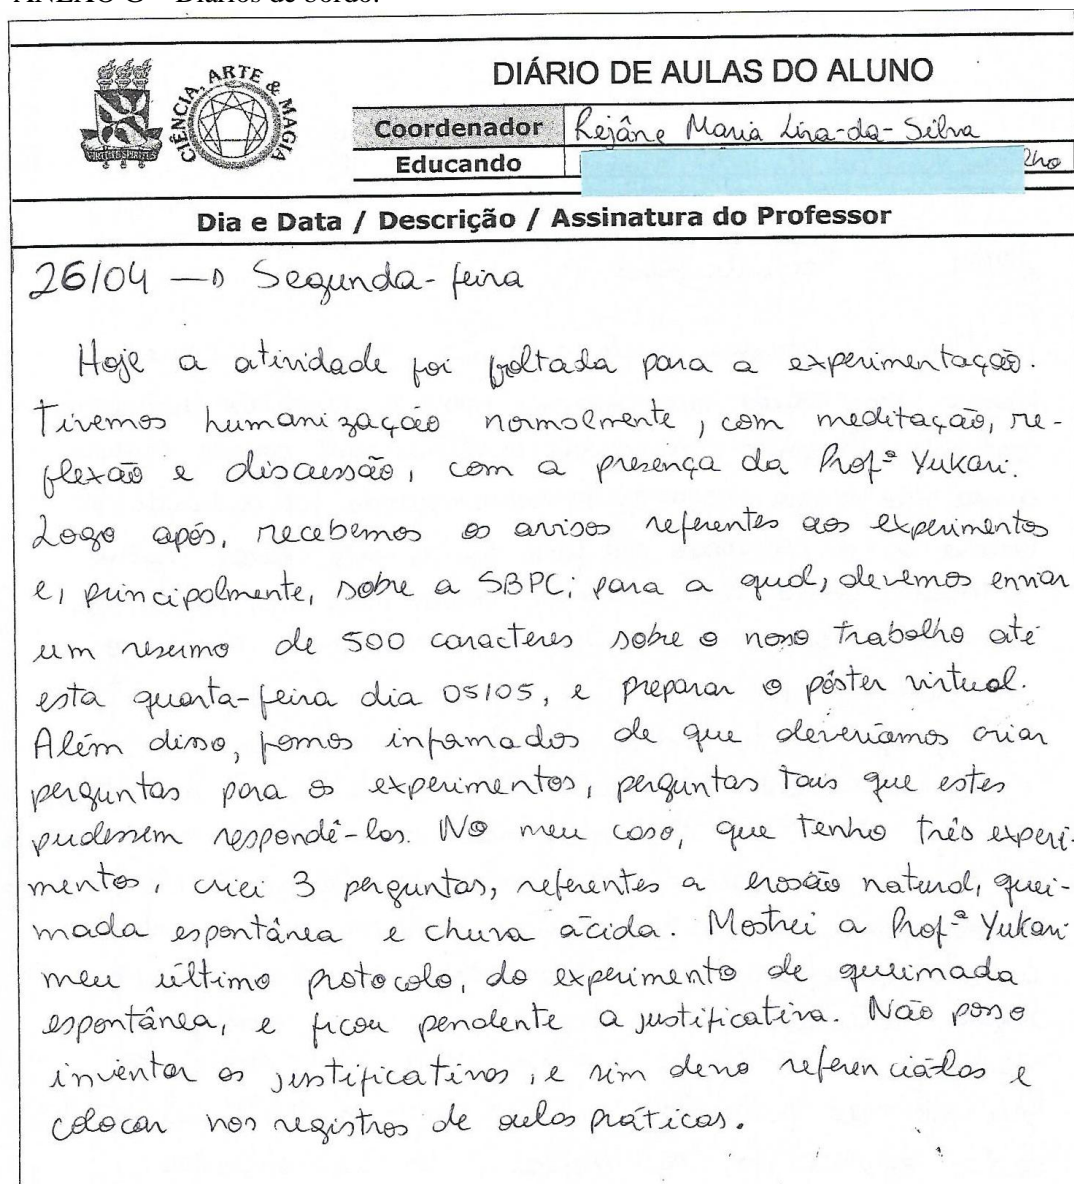 Diários de bordo.
CIÊNCIA, ARTE & MAGIA
DIÁRIO DE AULAS DO ALUNO
Coordenador Rejâne Maria Lira-da-Silva
Educando lho
Dia e Data / Descrição / Assinatura do Professor
26/04 → Segunda-feira
Hoje a atividade foi voltada para a experimentação.
Tivemos humanização normalmente, com meditação, re-
flexão e discussão, com a presença da Profª Yukari.
Logo após, recebemos os avisos referentes aos experimentos
e, principalmente, sobre a SBPC; para a qual, devemos enviar
um resumo de 500 caracteres sobre o nosso trabalho até
esta quarta-feira dia 05/05, e preparar o pôster virtual.
Além disso, fomos informados de que deveríamos criar
perguntas para os experimentos, perguntas tais que estes
pudessem respondê-las. No meu caso, que tenho três experi-
mentos, criei 3 perguntas, referentes a erosão natural, quei-
mada espontânea e chuva ácida. Mostrei a Profª Yukari
meu último protocolo, do experimento de queimada
espontânea, e ficou pendente a justificativa. Não posso
inventar as justificativas, e sim devo referenciá-las e
colocar nos registros de aulas práticas.